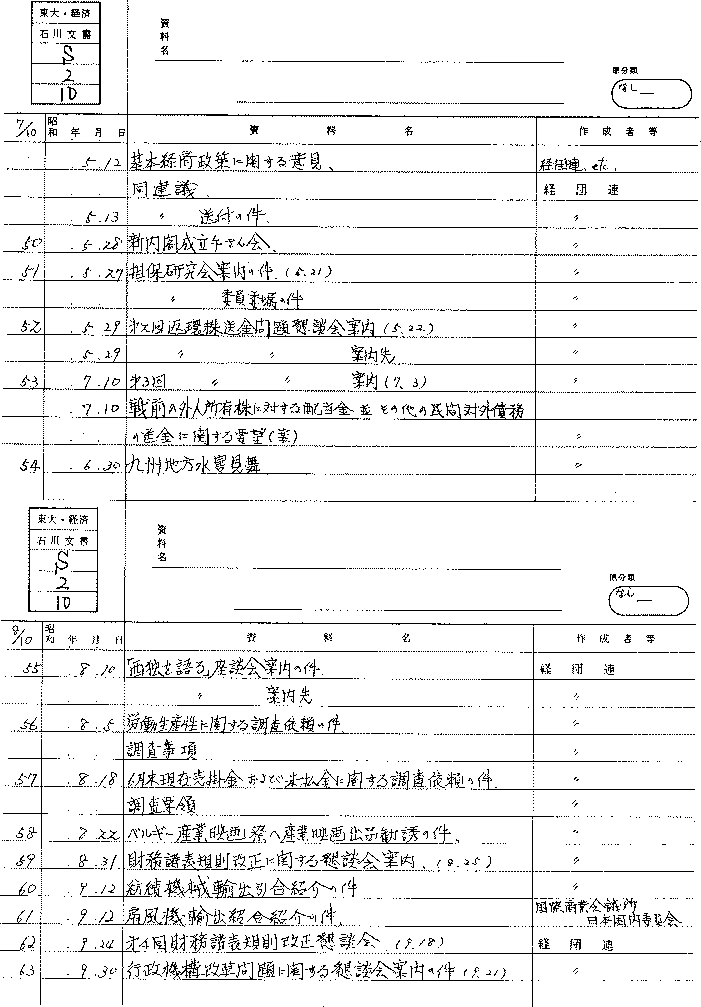 東大・経済
石川文書
S
2
10
資料名
原分類
なし
7/10 昭和 年 月 日 資料名 作成者等
5.12 基本経済政策に関する意見、 経団連, etc.
同建議 経団連
5.13 〃 送付の件 〃
50 5.28 新内閣成立 会、 〃
51 5.27 担保研究会案内の件 (5.21) 〃
〃 委員委嘱の件 〃
52 5.29 第2回返還株送金問題懇談会案内 (5.22) 〃
5.29 〃 〃 案内先 〃
53 7.10 第3回 〃 〃 案内 (7.3) 〃
7.10 戦前の外人所有株に対する配当金並その他の民間対外債務
の送金に関する要望(案) 〃
54 6.30 九州地方水害見舞 〃
東大・経済
石川文書
S
2
10
資料名
原分類
なし
8/10 昭和 年 月 日 資料名 作成者等
55 8.10 「西独を語る」座談会案内の件 経団連
〃 案内先 〃
56 8.5 労働生産性に関する調査依頼の件 〃
調査事項
57 8.18 6月末現在売掛金および未払金に関する調査依頼の件 〃
調査要領
58 8.22 ベルギー産業映画祭へ産業映画出品勧誘の件、 〃
59 8.31 財務諸表規則改正に関する懇談会案内、(8.25) 〃
60 9.12 紡績機械輸出引合紹介の件 〃
61 9.12 扇風機輸出紹介の件、 国際商業会議所
日本国内委員会
62 9.24 第4回財務諸表規則改正懇談会 (9.18) 経団連
63 9.30 行政機構改革問題に関する懇談会案内の件 (9.21) 〃